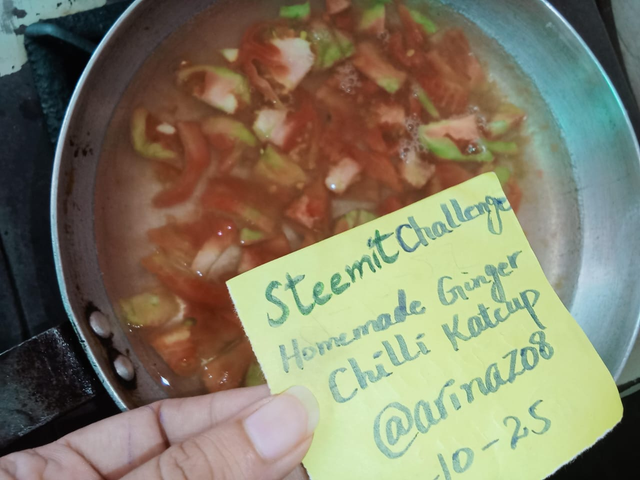 Steemit Challenge
Homemade Ginger
Chilli Katchup
@arinaz08
-10-25